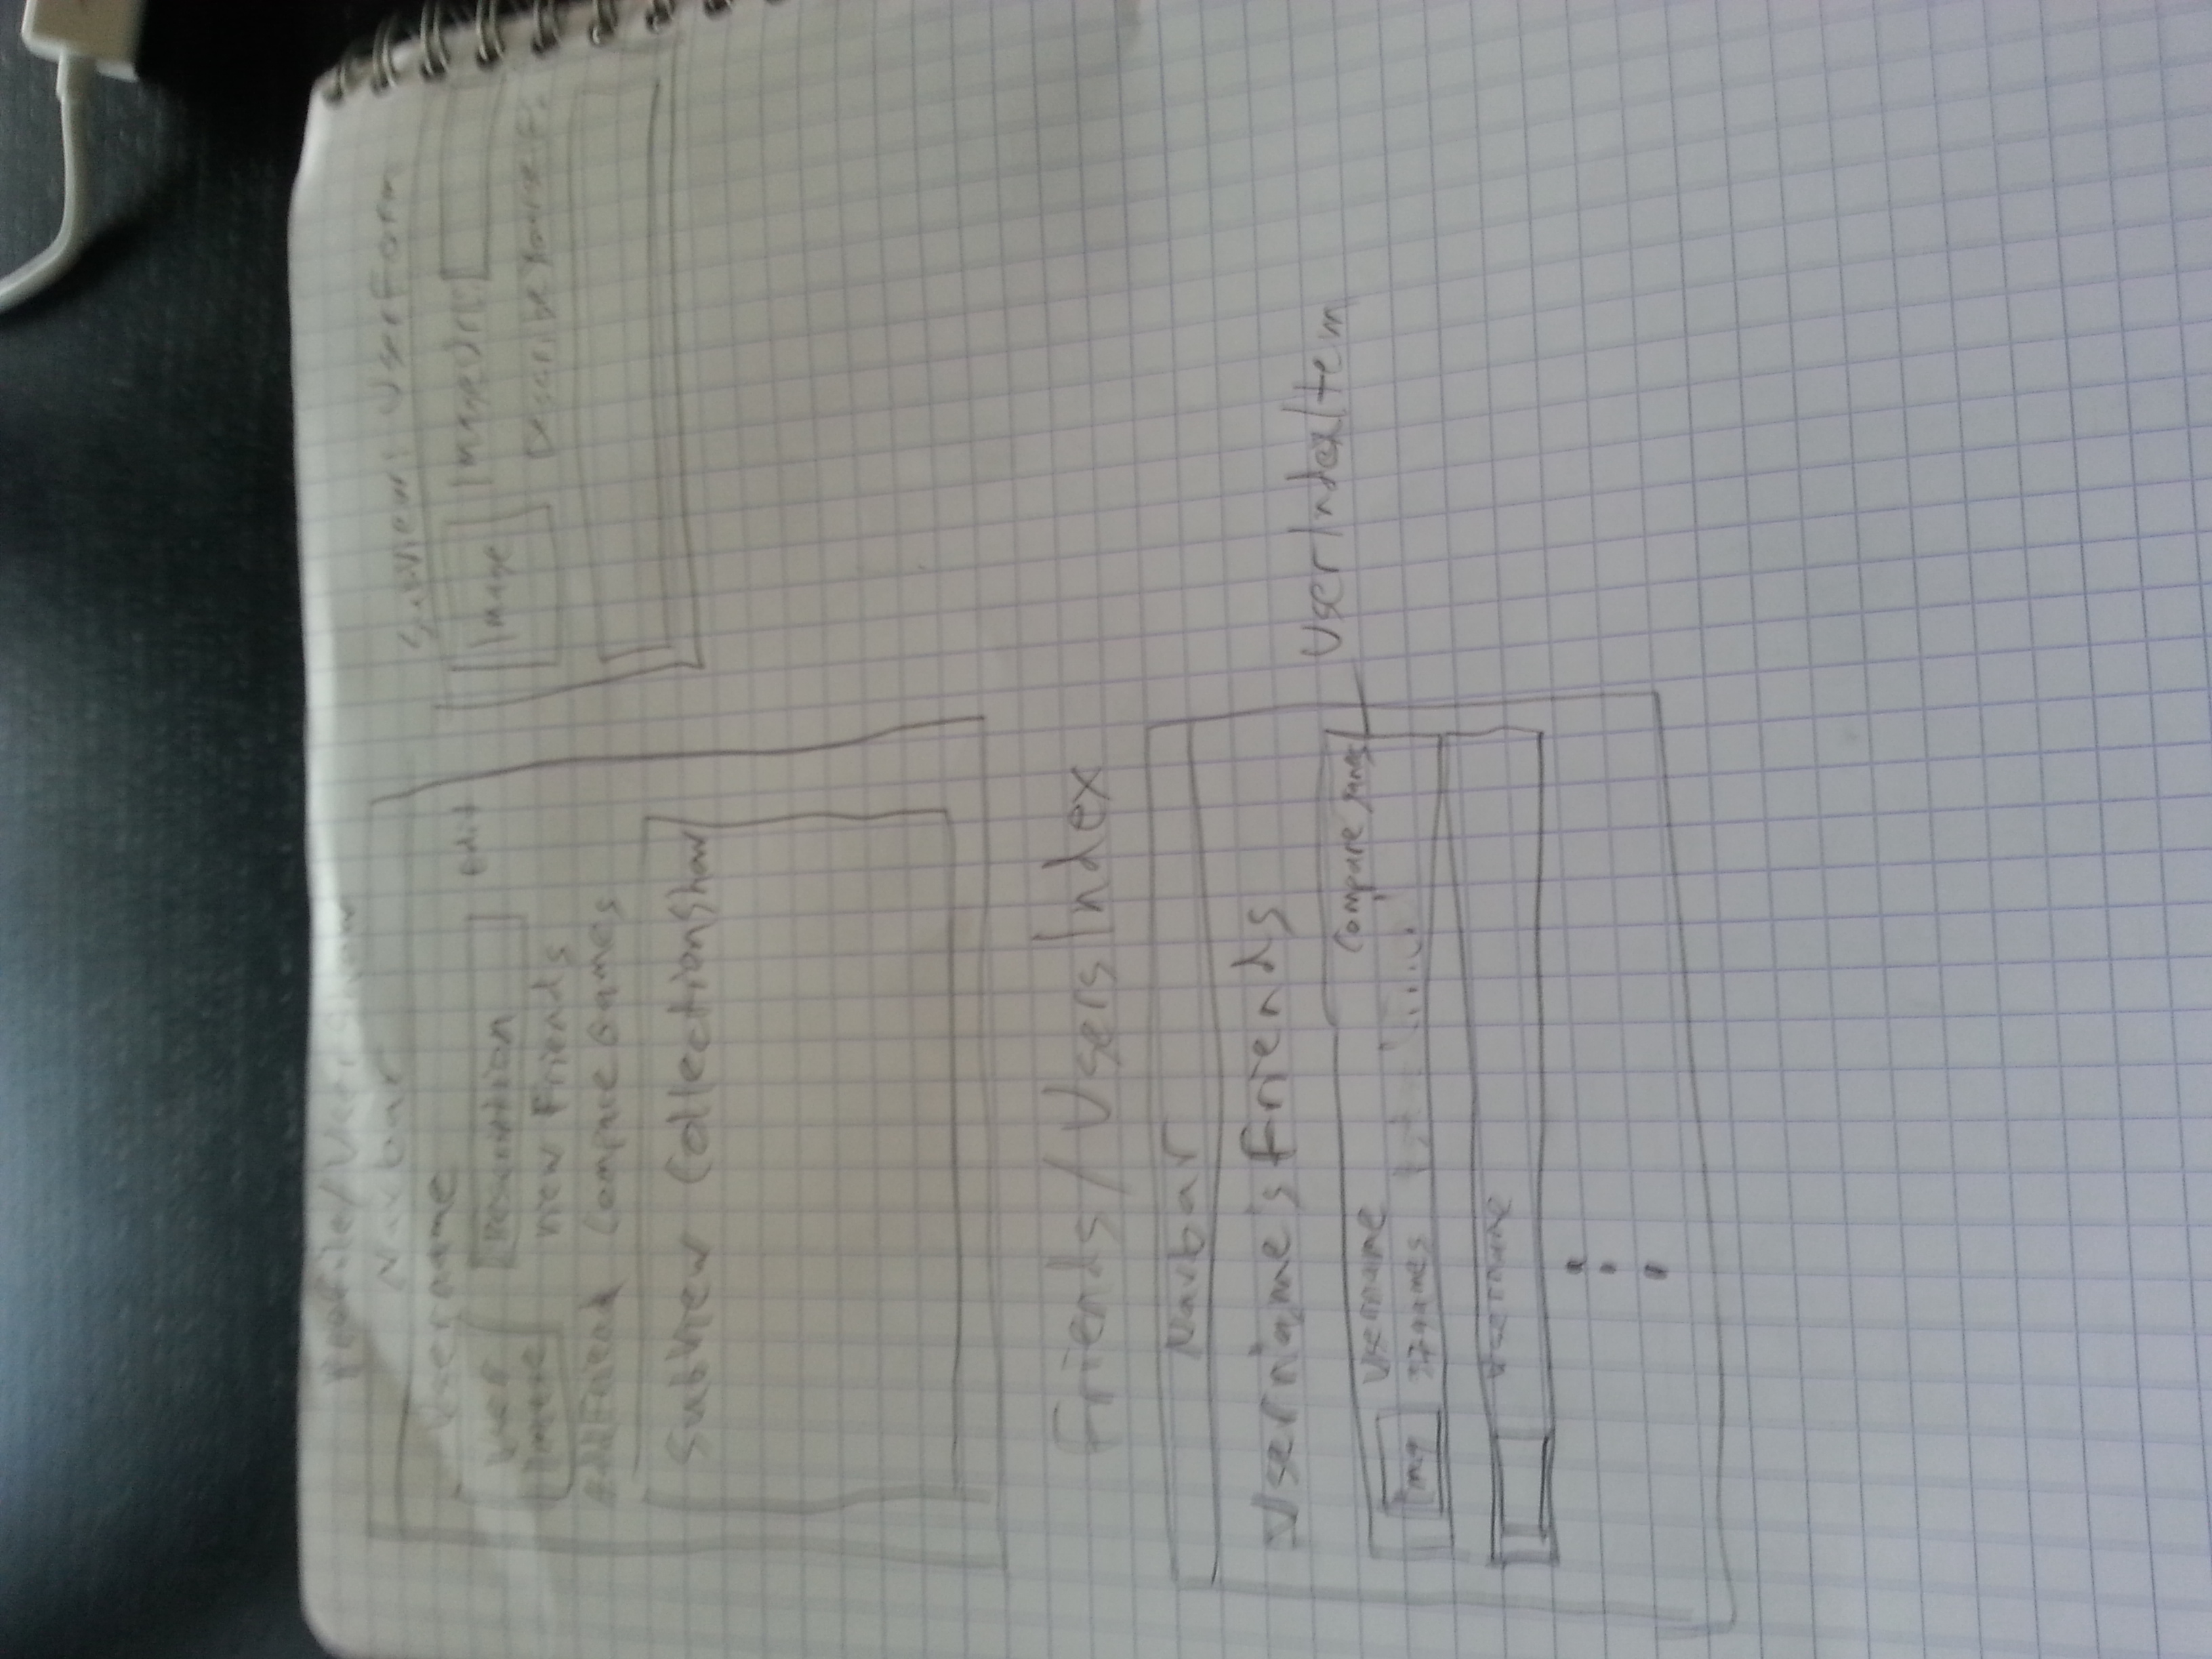 Profile/UserShow
Navbar
Username
User Image
Description
Edit
View Friends
Add Friend Compare Games
Subview CollectionShow
Subview: UserForm
Image
Image Url:
Describe Yourself:
Friends/UsersIndex
Navbar
Username's Friends
Username
Compare games
UserIndexItem
img
37 games
Username